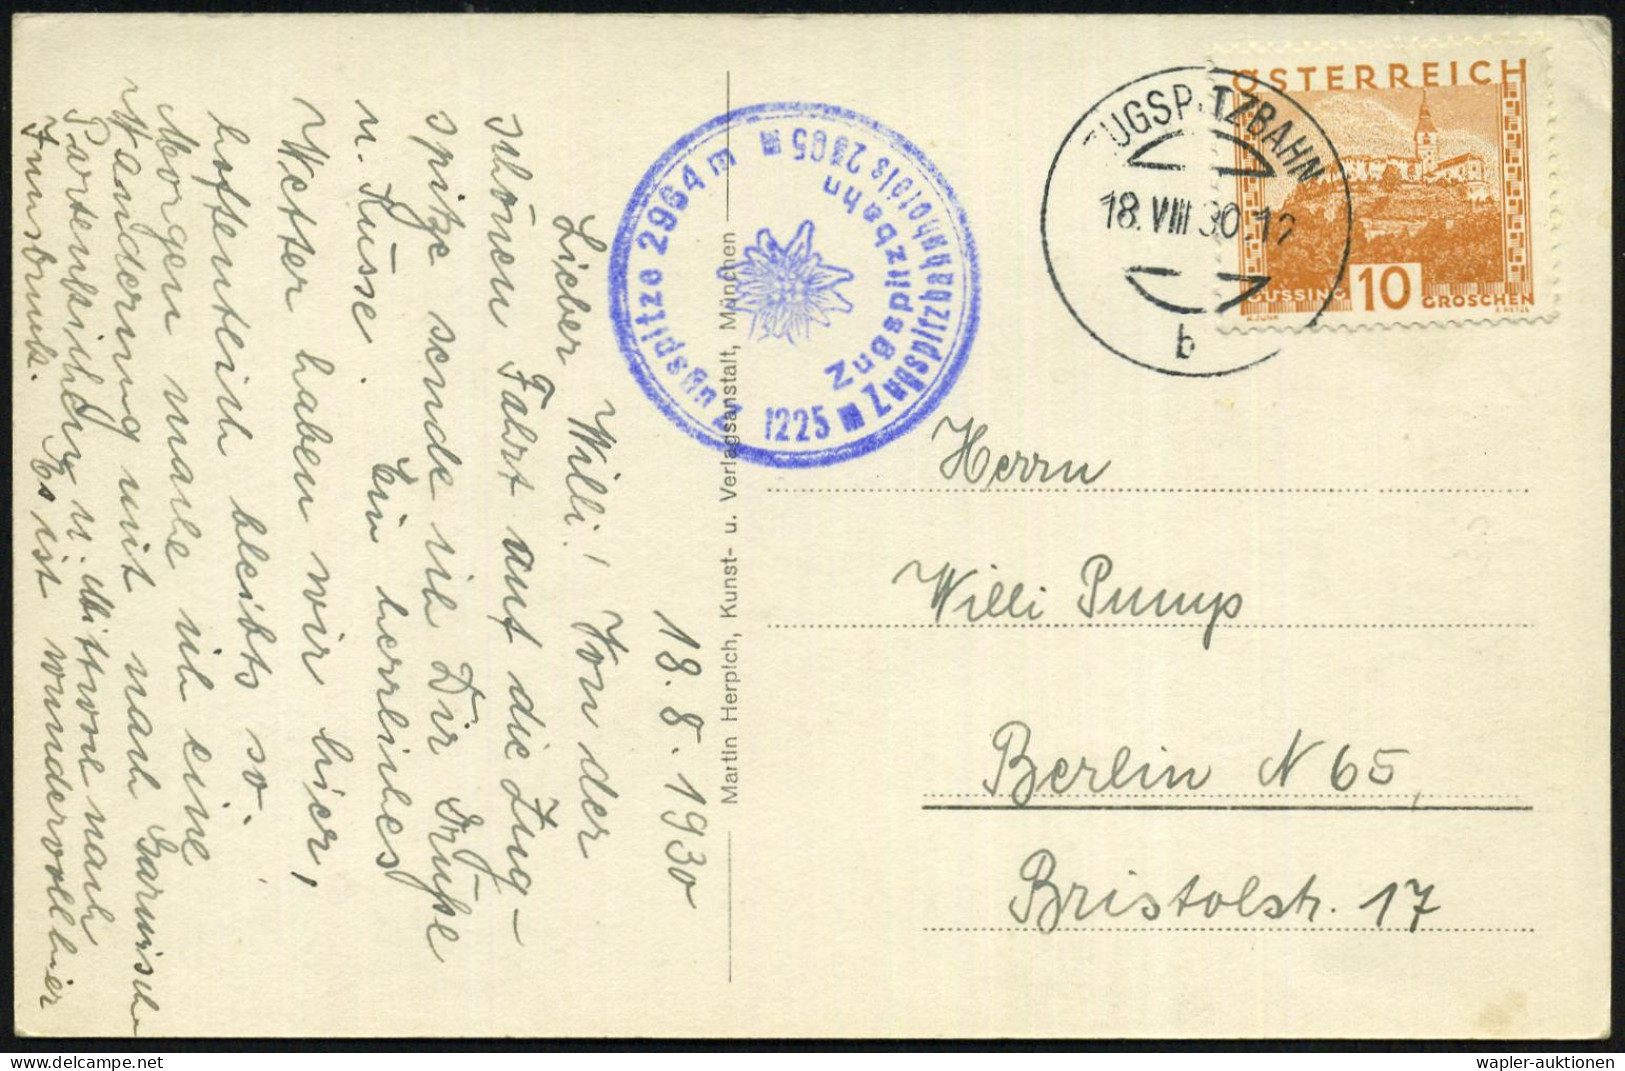 18. 8. 1930
Lieber Willi! Von der
schönen Fahrt auf die Zug-
spitze sende ich Dir Grüße
u. Küsse. Ein herrliches
Wetter haben wir hier,
hoffentlich bleibts so.
Morgen mache ich eine
Wanderung mit nach Garmisch-
Partenkirchen u. Mittwoch nach
Innsbruck. Es ist wundervoll hier
Martin Herpich, Kunst- u. Verlagsanstalt, München
Zugspitze 2964 m
Zugspitzbahnhof 2805 m
1225 m
Zugspitzbahn
ZUGSPITZBAHN
18.VIII 30 12
b
ÖSTERREICH
GÜSSING 10 GROSCHEN
Herrn
Willi Pump
Berlin N 65,
Bristolstr. 17
wapler-auktionen